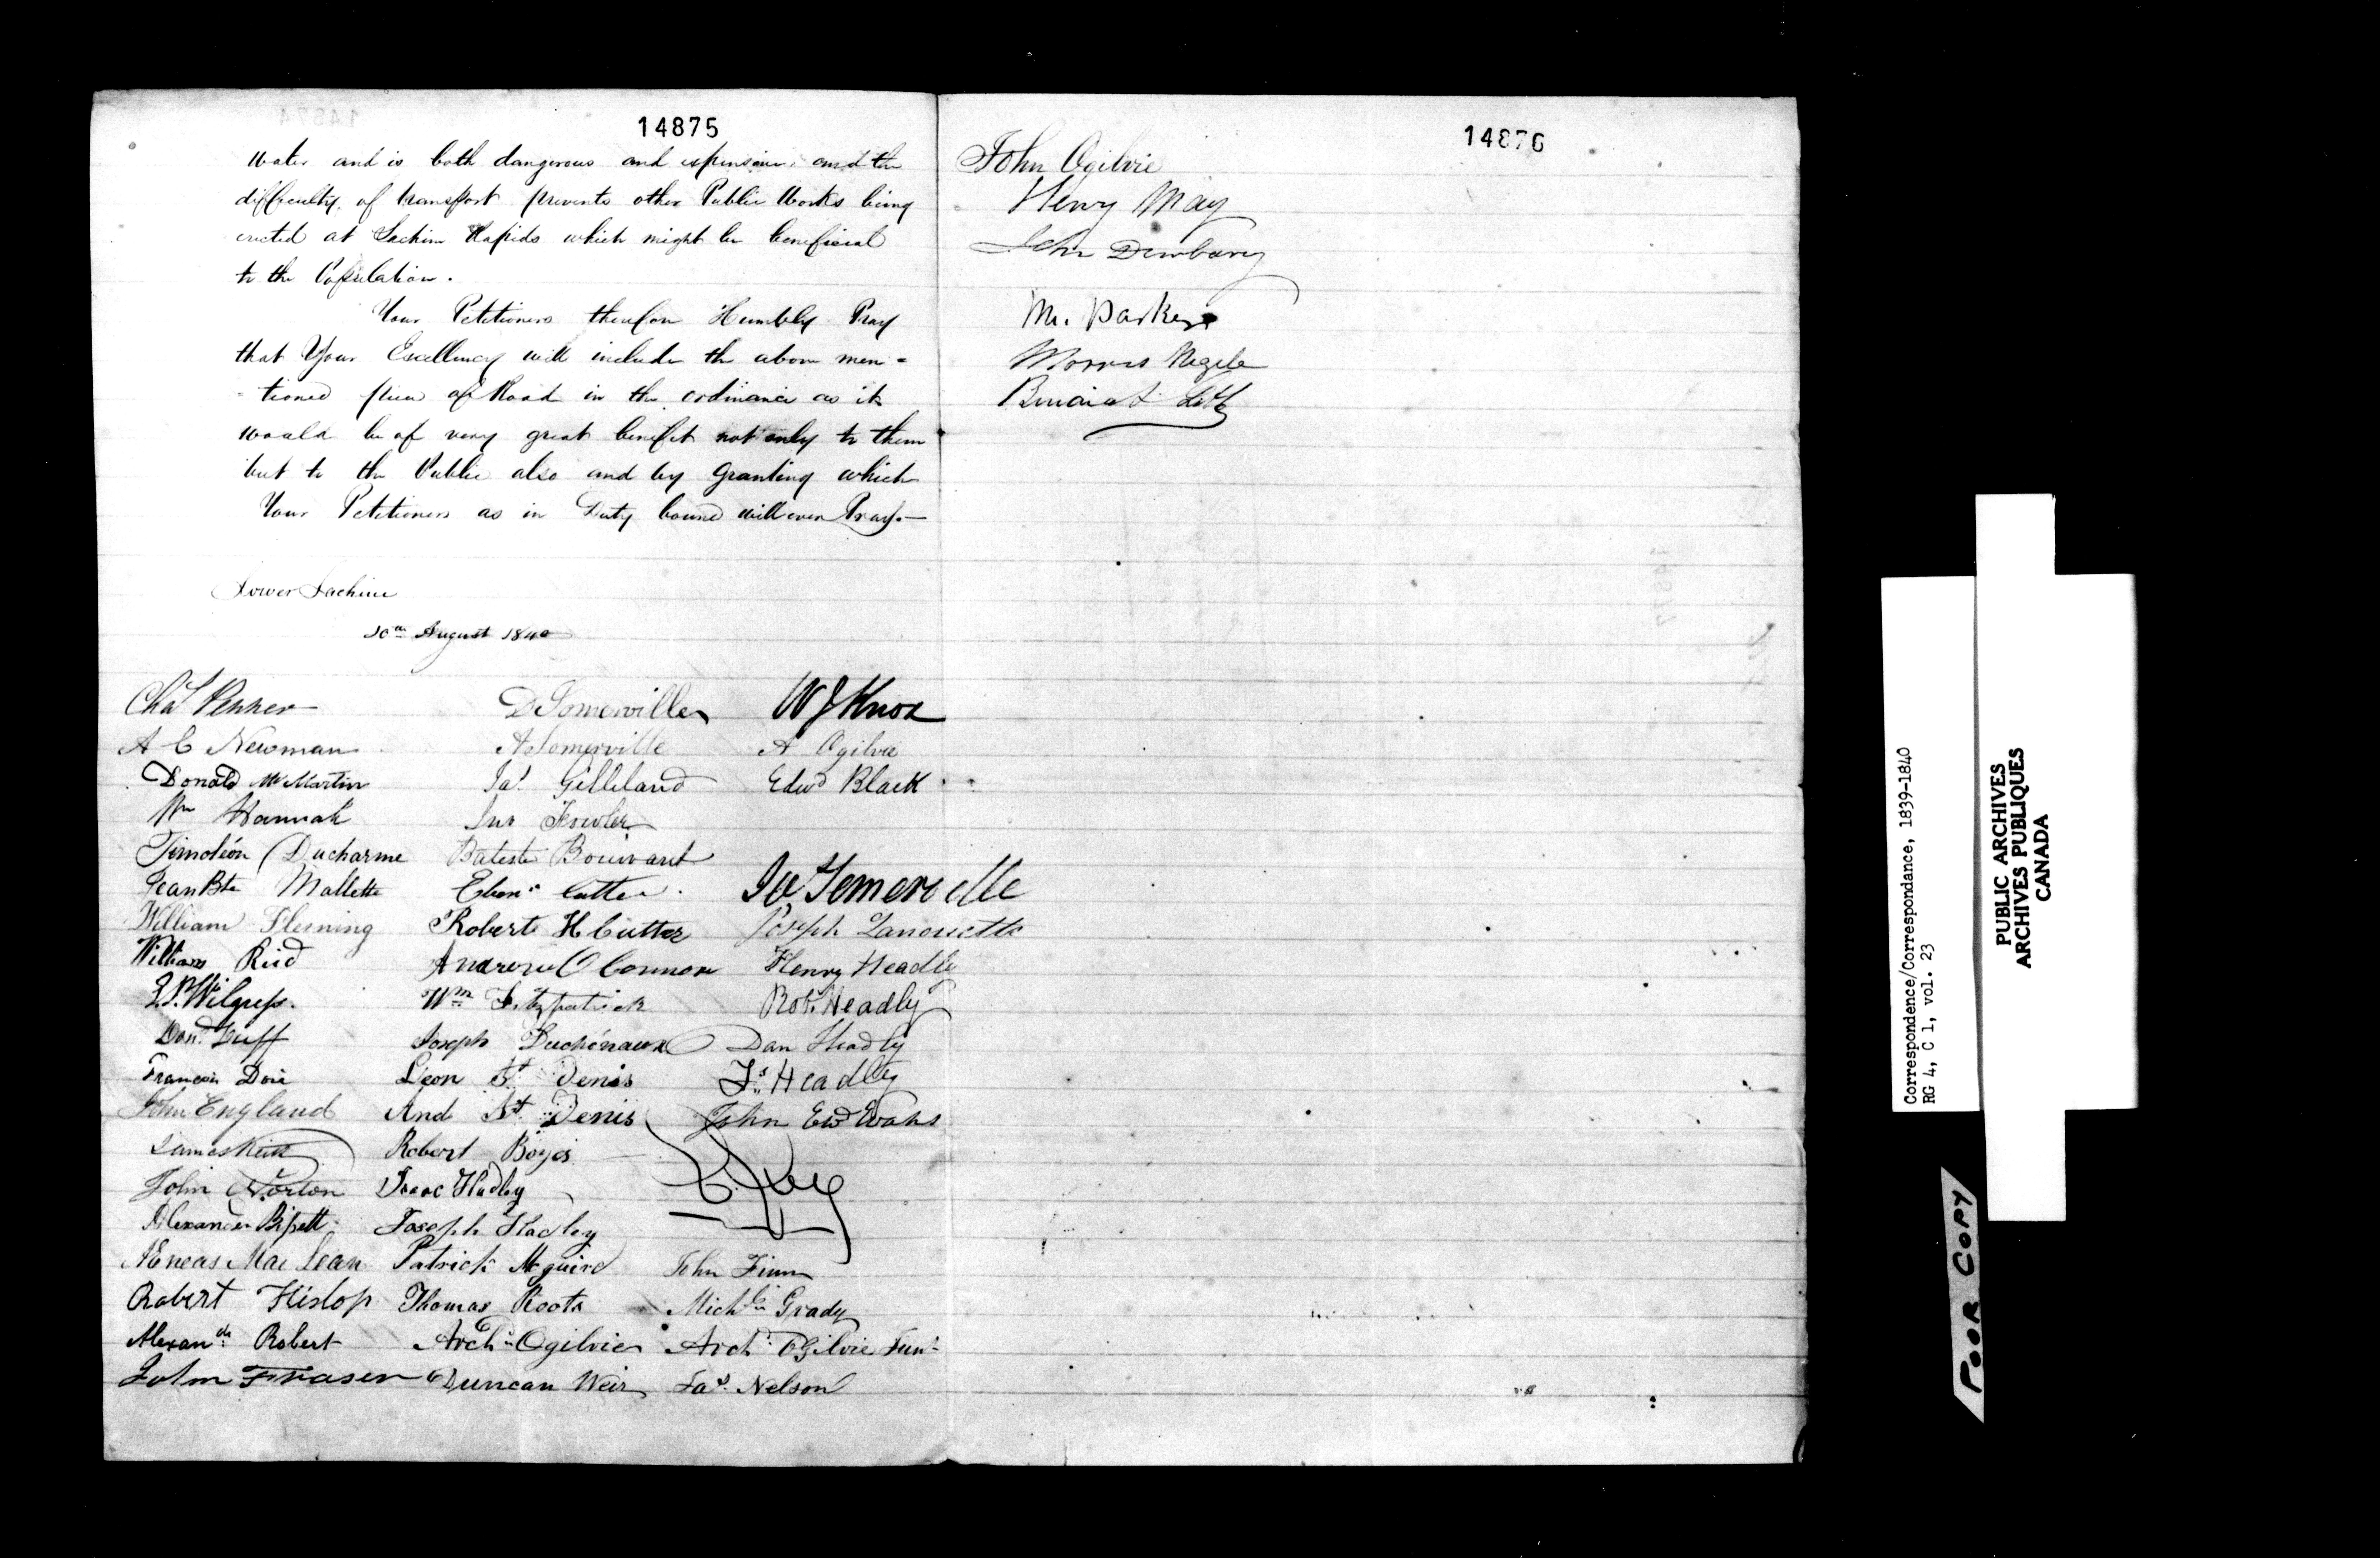 14875
water and is both dangerous and expensive and the
difficulty of transport prevents other Public Works being
erected at Lachine Rapids which might be beneficial
to the Population.
Your Petitioners therefore Humbly Pray
that Your Excellency will include the above men =
= tioned piece of Road in the ordinance as it
would be of very great benefit not only to them
but to the Public also and by granting which
Your Petitioners as in Duty bound will ever Pray.—
Lower Lachine
10th August 1840
Chas Penner
A C Newman
Donald McMartin
Wm Hannah
Timoléon Ducharme
Jean Bte Mallette
William Fleming
William Reid
Wilgress.
Dond. Duff
Francois Doré
John England
James Keith
John Norton
Alexander Bissett
Æneas MacLean
Robert Hislop
Alexandr. Robert
John Fraser
D Somerville
A Somerville
Jas. Gilliland
Jno Fowler
Bateste Bouvant
Ebenr. Cutter.
Robert H Cutter
Andrew O Connor
Wm Fitzpatrick
Joseph Duchénaux
Léon St Denis
And St. Denis
Robert Boyes
Isaac Hadley
Joseph Hadley
Patrick Mcguire
Thomas Roots
Archd. Ogilvie
Duncan Weir
W J Knox
A Ogilvie
Edwd Black
Somerville
Joseph Lanouette
Henry Headly
Robt. Headly
Dan Headly
Js. Headly
John Ewd Evans
John Finn
Michl. Grady
Archd. Ogilvie Junr
Jas. Nelson
14876
John Ogilvie
Henry May
John Dewbary
M. Parker
Morris
PUBLIC ARCHIVES
ARCHIVES PUBLIQUES
CANADA
Correspondence/Correspondance, 1839-1840
RG 4, C 1, vol. 23
POOR COPY